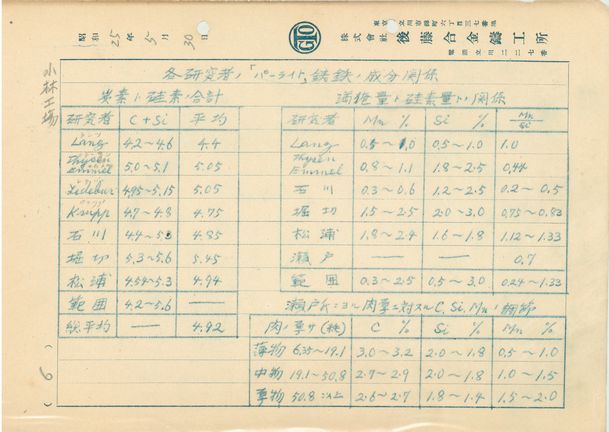 東京都立川市錦町六丁目三七番地
株式會社 後藤合金鑄工所
電話立川二二七番
GTO
昭和25年5月30日
小林工場
各研究者ノ「パーライト」鋳鉄ノ成分関係
炭素ト硅素ノ合計
研究者 C+Si 平均
Lang 4.2~4.6 4.4
Thysen Emmel 5.0~5.1 5.05
Ledebur 4.95~5.15 5.05
Krupp 4.7~4.8 4.75
石川 4.85
堀切 5.3~5.6 5.45
松浦 4.54~5.3 4.94
範囲 4.2~5.6 —
総平均 — 4.92
満俺量ト硅素量トノ関係
研究者 Mn % Si % Mn/Si
Lang 0.5~1.0 0.5~1.0 1.0
Thysen Emmel 0.8~1.1 1.8~2.5 0.44
石川 0.3~0.6 1.2~2.5 0.2~0.5
堀切 1.5~2.5 2.0~3.0 0.75~0.83
松浦 1.8~2.4 1.6~1.8 1.12~1.33
瀬戸 — — 0.7
範囲 0.3~2.5 0.5~3.0 0.24~1.33
瀬戸氏ニヨル肉厚ニ対スルC,Si,Mnノ調節
肉ノ厚サ(粍) C % Si % Mn %
薄物 6.35~19.1 3.0~3.2 2.0~1.8 0.5~1.0
中物 19.1~50.8 2.7~2.9 2.0~1.8 1.0~1.5
厚物 50.8以上 2.6~2.7 1.8~1.4 1.5~2.0
(6)